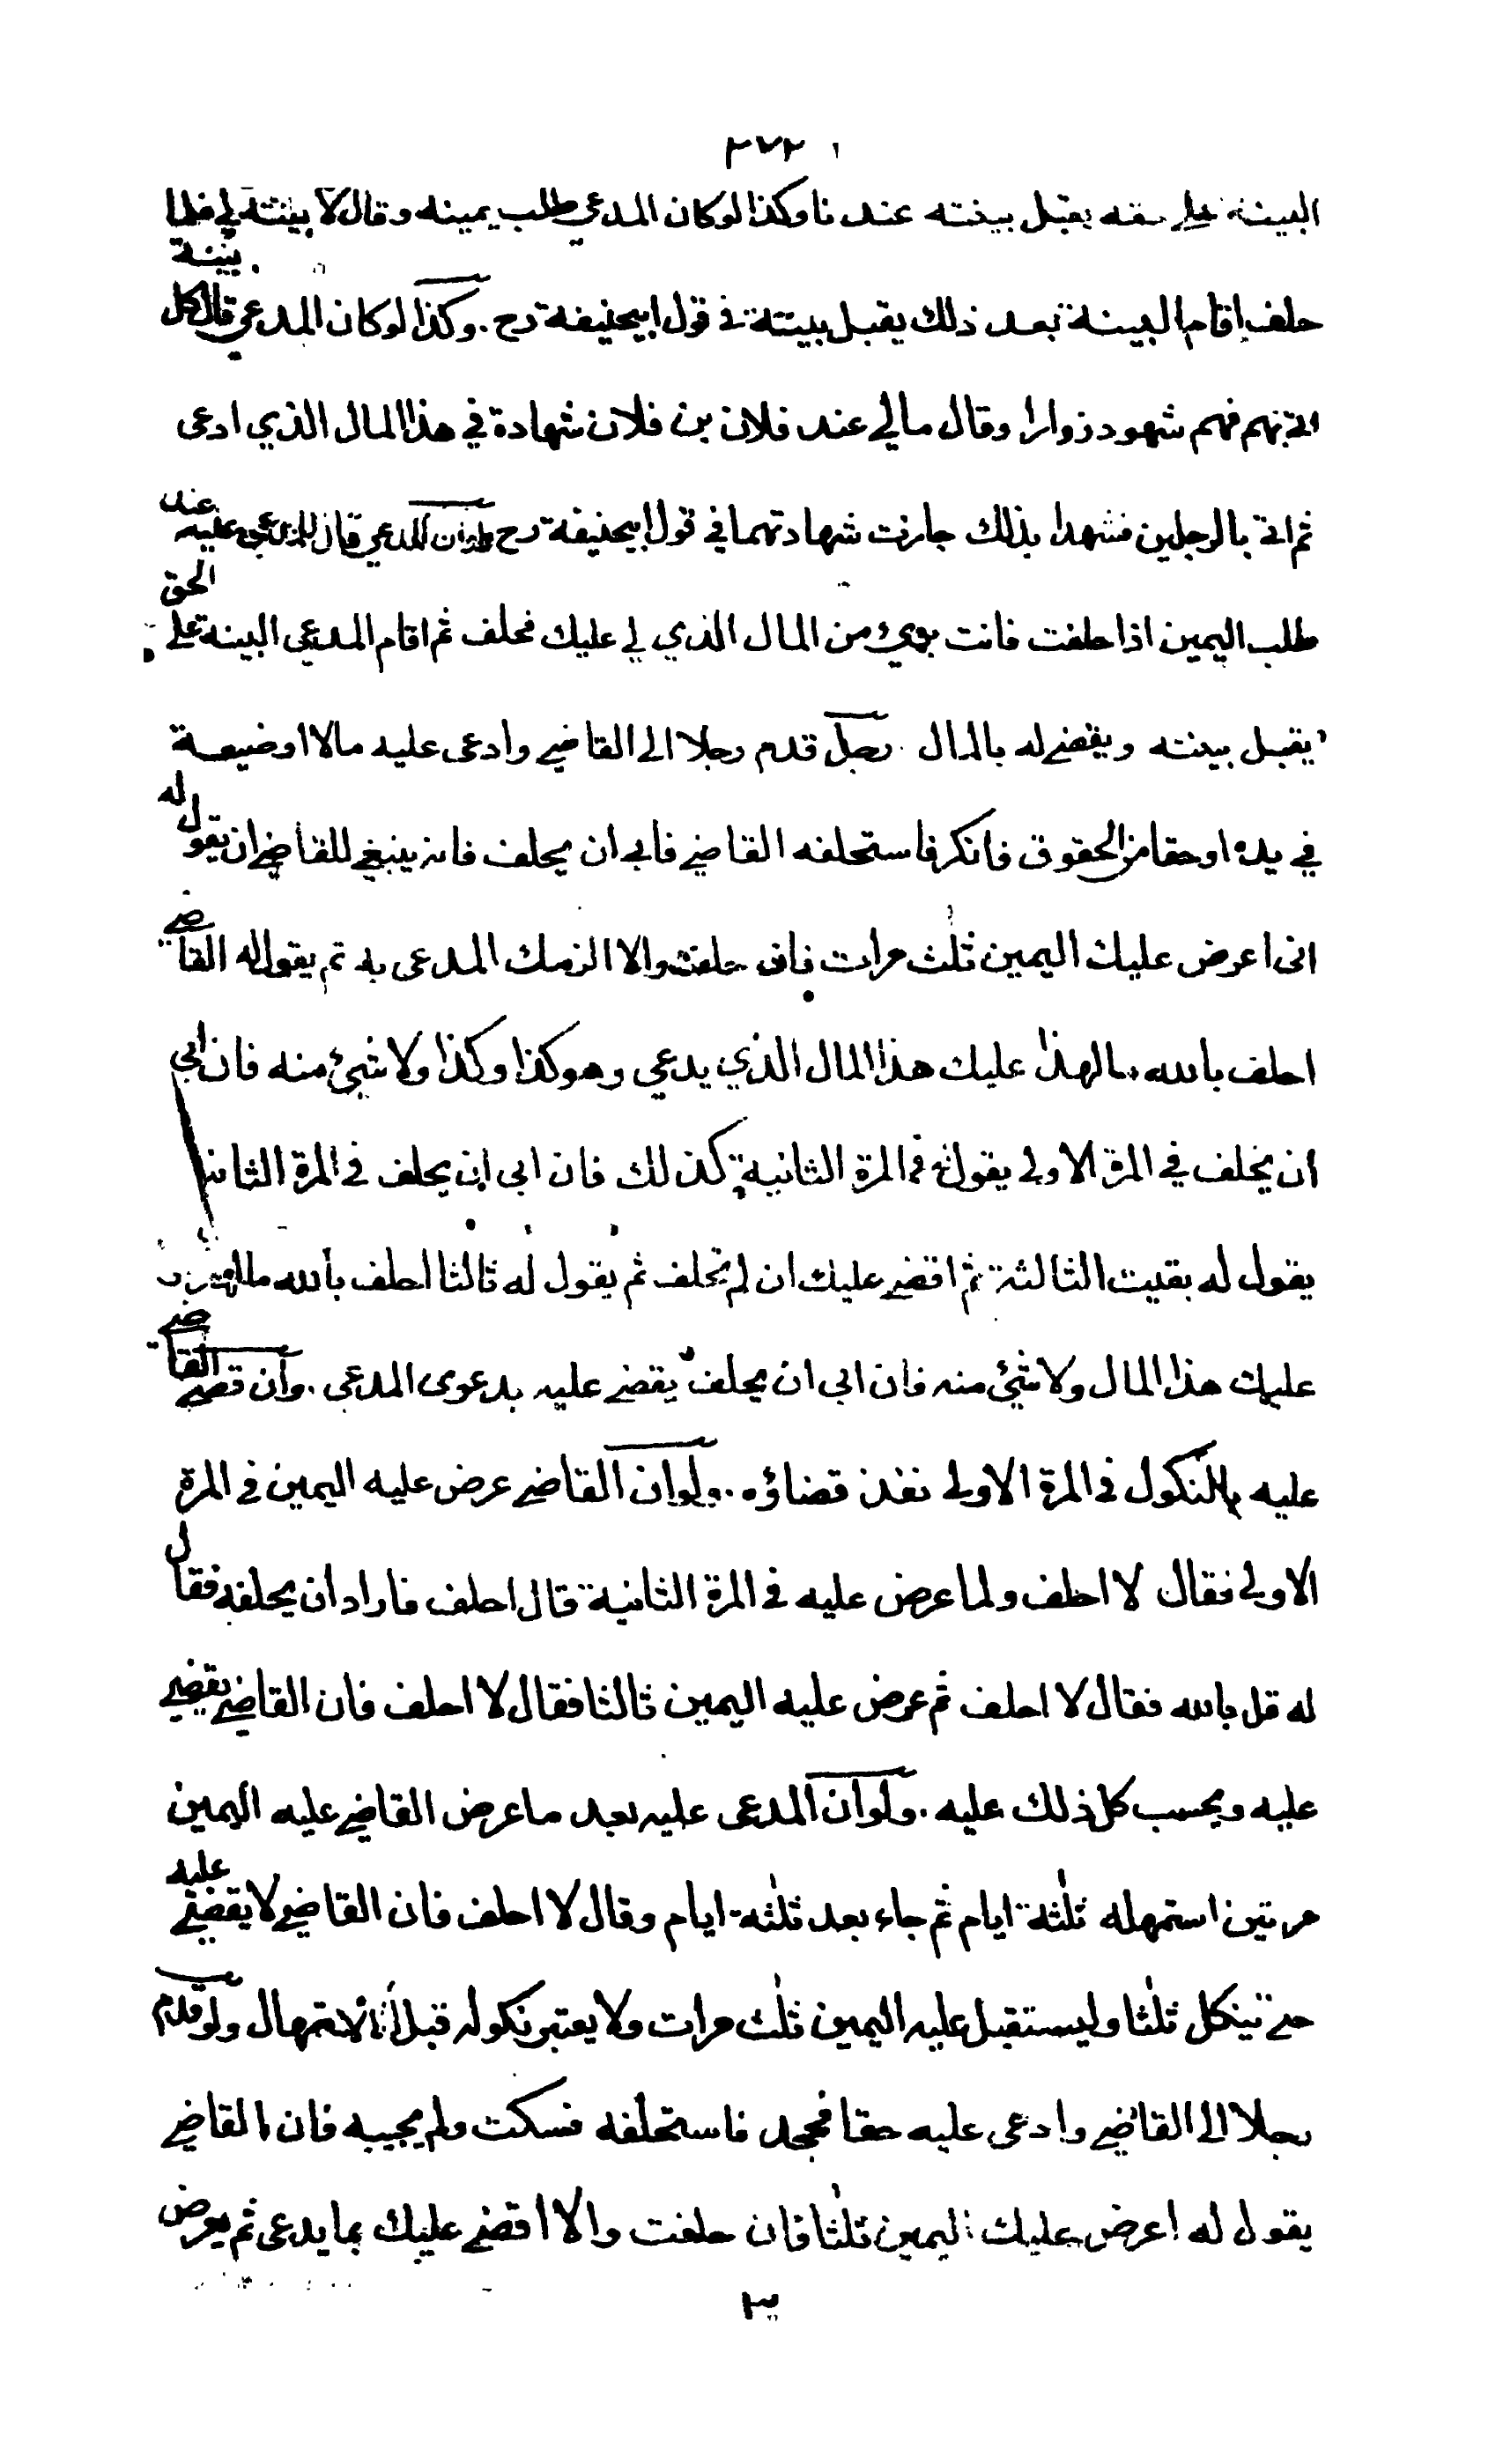 ٣٧٢
البينة على حقه يقبل بينته عندنا وكذا لو كان المدعي طلب يمينه وقال لا بينة لي فلما
حلف اقام البينة بعد ذلك يقبل بينته في قول ابيحنيفة رح . وكذا لو كان المدعي قال كل بينة
اتي بهم فهم شهود زور او قال مالي عند فلان بن فلان شهادة في هذا المال الذي ادعى
ثم اتى بالرجلين فشهدا بذلك جازت شهادتهما في قول ابيحنيفة رح ولو ان المدعي قال للمدعى عليه عند
طلب اليمين اذا حلفت فانت بريئ من المال الذي لي عليك فحلف ثم اقام المدعي البينة على الحق
يقبل بينته ويقضي له بالمال . رجل قدم رجلا الى القاضي وادعى عليه مالا او ضيعة
في يده او حقا من الحقوق فانكر فاستحلفه القاضي فابى ان يحلف فانه ينبغي للقاضي ان يقول له
انى اعرض عليك اليمين ثلث مرات فان حلفت والا الزمك المدعى به ثم يقول له القاضي
احلف بالله ما لهذا عليك هذا المال الذي يدعي وهو كذا وكذا ولا شيئ منه فان ابي
ان يحلف في المرة الاولى يقول له في المرة الثانية كذلك فان ابى ان يحلف في المرة الثانية
يقول له بقيت الثالثة ثم اقضي عليك ان لم تحلف ثم يقول له ثالثا احلف بالله ما لهذا
عليك هذا المال ولا شيئ منه فان ابى ان يحلف يقضي عليه بدعوى المدعى . وان قضى القاضي
عليه بالنكول في المرة الاولى نفذ قضاؤه . ولو ان القاضي عرض عليه اليمين في المرة
الاولى فقال لا احلف ولما عرض عليه في المرة الثانية قال احلف فاراد ان يحلفه فقال
له قل بالله فقال لا احلف ثم عرض عليه اليمين ثالثا فقال لا احلف فان القاضي يقضي
عليه ويحسب كل ذلك عليه . ولو ان المدعى عليه بعد ما عرض القاضي عليه اليمين
مرتين استمهله ثلثة ايام ثم جاء بعد ثلثة ايام وقال لا احلف فان القاضي لا يقضي عليه
حتى ينكل ثلثا وليستقبل عليه اليمين ثلث مرات ولا يعتبر نكوله قبل الاستمهال ولو قدم
رجلا الى القاضي وادعى عليه حقا فجحد فاستحلفه فسكت ولم يجيبه فان القاضي
يقول له اعرض عليك اليمين ثلثا فان حلفت والا اقضي عليك بما يدعى ثم يعرض